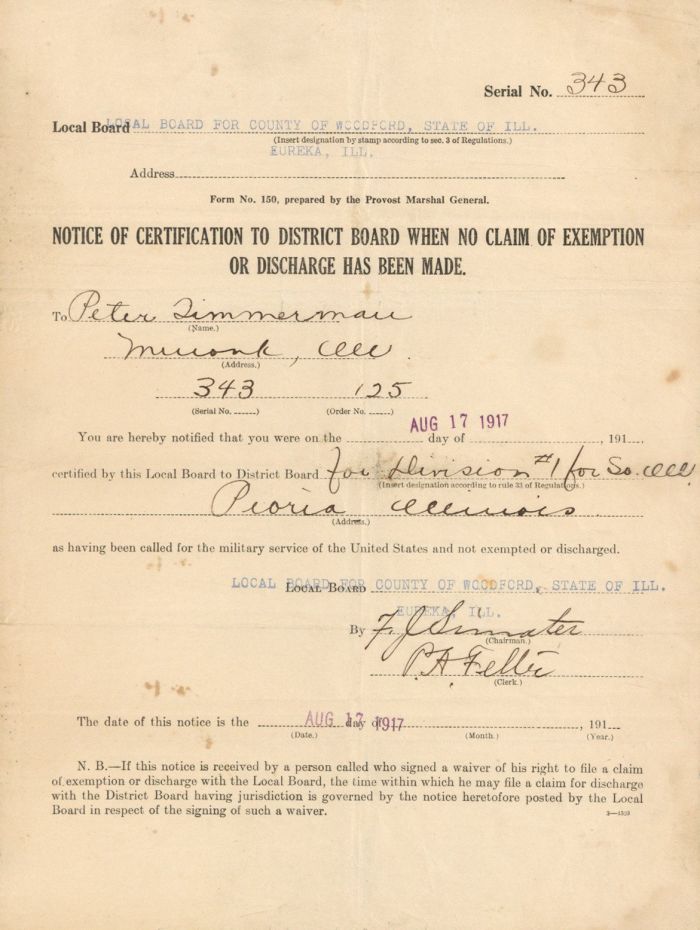 Serial No. 343
Local Board LOCAL BOARD FOR COUNTY OF WOODFORD, STATE OF ILL.
(Insert designation by stamp according to sec. 3 of Regulations.)
EUREKA, ILL.
Address
Form No. 150, prepared by the Provost Marshal General.
NOTICE OF CERTIFICATION TO DISTRICT BOARD WHEN NO CLAIM OF EXEMPTION
OR DISCHARGE HAS BEEN MADE.
To Peter Zimmerman
(Name.)
Minonk, Ill.
(Address.)
343 125
(Serial No. ......) (Order No. ......)
AUG 17 1917
You are hereby notified that you were on the day of , 191
certified by this Local Board to District Board for Division #1 for So. Ill.
(Insert designation according to rule 33 of Regulations.)
Peoria Illinois.
(Address.)
as having been called for the military service of the United States and not exempted or discharged.
LOCAL BOARD LOCAL BOARD FOR COUNTY OF WOODFORD, STATE OF ILL.
EUREKA, ILL.
By F. J.
(Chairman.)
P. A.
(Clerk.)
The date of this notice is the AUG 17 1917 day of , 191
(Date.) (Month.) (Year.)
N. B.—If this notice is received by a person called who signed a waiver of his right to file a claim
of exemption or discharge with the Local Board, the time within which he may file a claim for discharge
with the District Board having jurisdiction is governed by the notice heretofore posted by the Local
Board in respect of the signing of such a waiver.